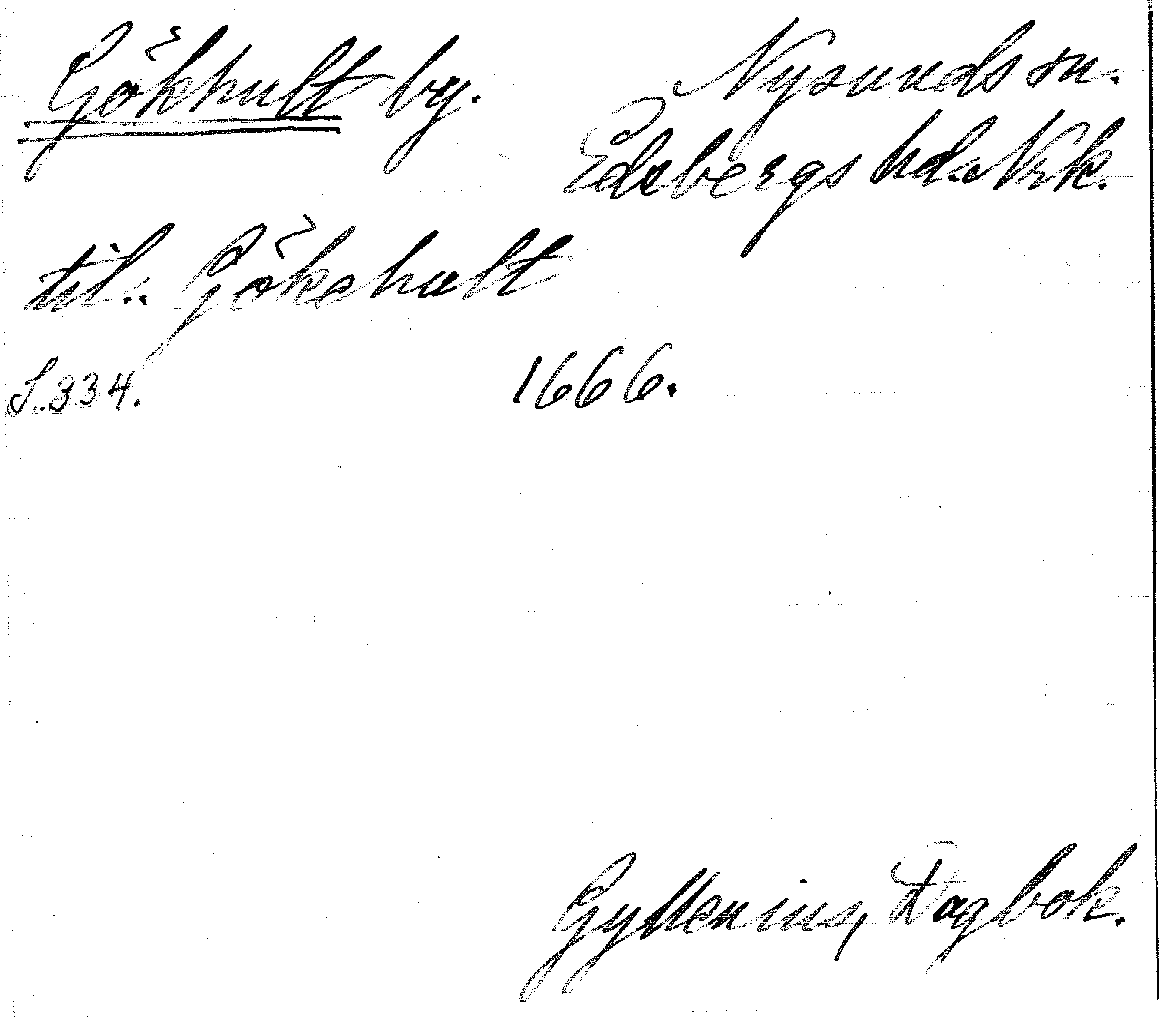 Gökhult by.
Nysunds sn.
Edsbergs hd. Nrk.
til.. Gökshult
S. 334. 1666.
Gyllenius, Dagbok.